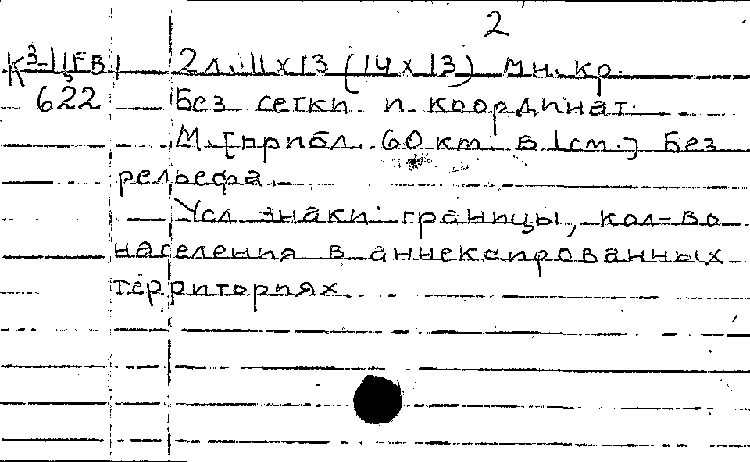 2
К3-ЦЕВ/ 2 л. 11 х 13 (14 х 13) мн. кр.
622 Без сетки и координат.
М. [прибл. 60 км. в 1 см.] Без
рельефа.
Усл. знаки: границы, кол-во
населения в аннексированных
территориях